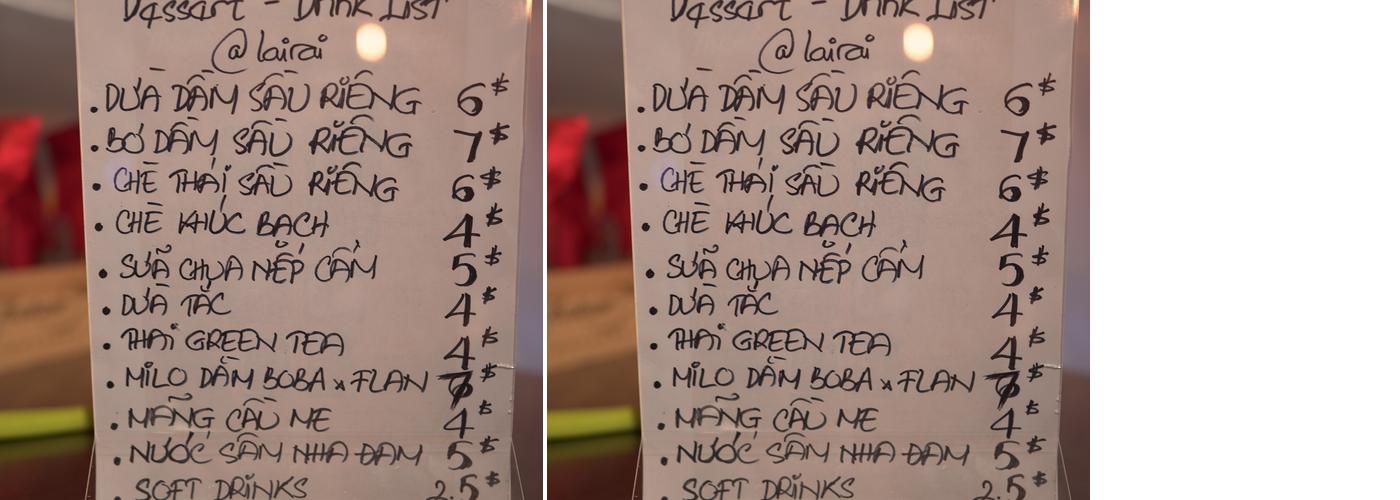 Dessert - Drink List
@lairai
. DỪA DẦM SẦU RIÊNG 6$
. BƠ DẦM SẦU RIÊNG 7$
. CHÈ THÁI SẦU RIÊNG 6$
. CHÈ KHÚC BẠCH 4$
. SỮA CHUA NẾP CẨM 5$
. DỪA TẮC 4$
. THAI GREEN TEA 4$
. MILO DẦM BOBA x FLAN $
. MÃNG CẦU ME 4$
. NƯỚC SÂM NHA ĐAM 5$
. SOFT DRINKS 2.5$
Dessert - Drink List
@lairai
. DỪA DẦM SẦU RIÊNG 6$
. BƠ DẦM SẦU RIÊNG 7$
. CHÈ THÁI SẦU RIÊNG 6$
. CHÈ KHÚC BẠCH 4$
. SỮA CHUA NẾP CẨM 5$
. DỪA TẮC 4$
. THAI GREEN TEA 4$
. MILO DẦM BOBA x FLAN $
. MÃNG CẦU ME 4$
. NƯỚC SÂM NHA ĐAM 5$
. SOFT DRINKS 2.5$